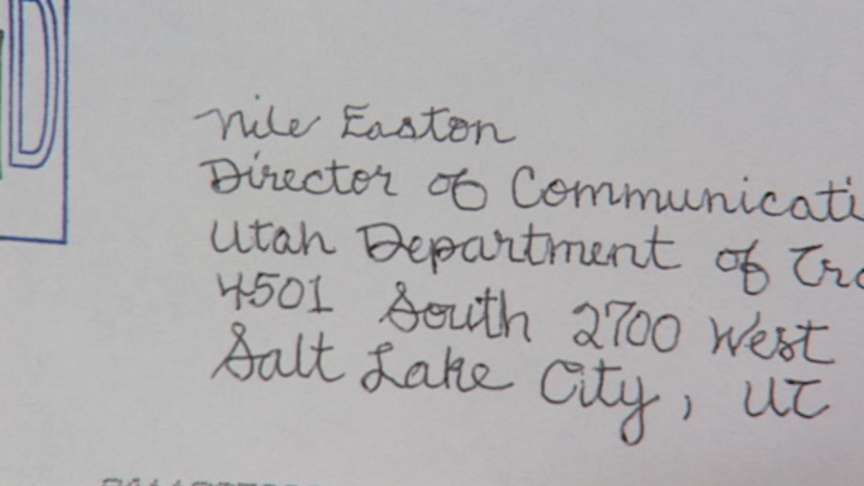 D
Nile Easton
Director of Communicati
Utah Department of Tra
4501 South 2700 West
Salt Lake City, UT